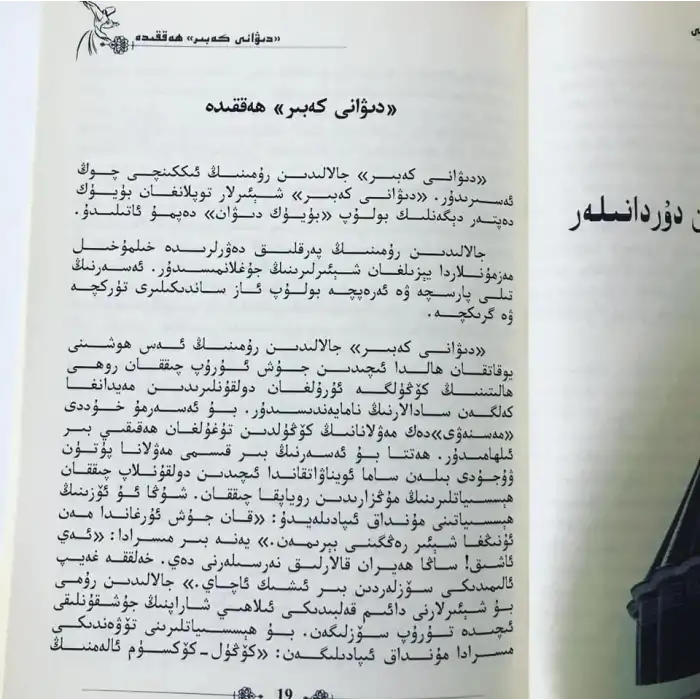 «دىۋانى كەبىر» ھەققىدە
«دىۋانى كەبىر» ھەققىدە
«دىۋانى كەبىر» جالالىدىن رۇمىنىڭ ئىككىنچى چوڭ
ئەسىرىدۇر. «دىۋانى كەبىر» شېئىرلار توپلانغان بۈيۈك
دەپتەر دېگەنلىك بولۇپ «بۈيۈك دىۋان» دەپمۇ ئاتىلىدۇ.
جالالىدىن رۇمىنىڭ پەرقلىق دەۋرلىردە خىلمۇخىل
مەزمۇنلاردا يېزىلغان شېئىرلىرىنىڭ جۇغلانمىسىدۇر. ئەسەرنىڭ
تىلى پارىسچە ۋە ئەرەپچە بولۇپ ئاز ساندىكىلىرى تۈركچە
ۋە گرىكچە.
«دىۋانى كەبىر» جالالىدىن رۇمىنىڭ ئەس ھوشىنى
يوقاتقان ھالدا ئىچىدىن جۇش ئۇرۇپ چىققان روھى
ھالىتىنىڭ كۆڭۈلگە ئۇرۇلغان دولقۇنلىرىدىن مەيدانغا
كەلگەن سادالارنىڭ نامايەندىسىدۇر. بۇ ئەسەرمۇ خۇددى
«مەسنەۋى»دەك مەۋلانانىڭ كۆڭۈلدىن تۇغۇلغان ھەقىقىي بىر
ئىلھامىدۇر. ھەتتا بۇ ئەسەرنىڭ بىر قىسمى مەۋلانا پۈتۈن
ۋۇجۇدى بىلەن ساما ئوينىاۋاتقاندا ئىچىدىن دولقۇنلاپ چىققان
ھېسسىياتلىرىنىڭ مۇڭزارىدىن روياپقا چىققان. شۇڭا ئۇ ئۆزىنىڭ
ھېسسىياتىنى مۇنداق ئىپادىلەيدۇ: «قان جۇش ئۇرغاندا مەن
ئۇنىڭغا شېئىر رەڭگىنى بېرىمەن.» يەنە بىر مىسرادا: «ئەي
ئاشىق! ساڭا ھەيران قالارلىق نەرسىلەرنى دەي. خەلققە غەيپ
ئالىمىدىكى سۆزلەردىن بىر ئىشىك ئاچاي.» جالالىدىن رۇمى
بۇ شېئىرلارنى دائىم قەلبىدىكى ئىلاھىي شاراپنىڭ جۇشقۇنلىقى
ئىچىدە تۇرۇپ سۆزلىگەن. بۇ ھېسسىياتلىرىنى تۆۋەندىكى
مىسرادا مۇنداق ئىپادىلىگەن: «كۆڭۈل-كۆكسۈم ئالەمنىڭ
19
دۇردانىلەر